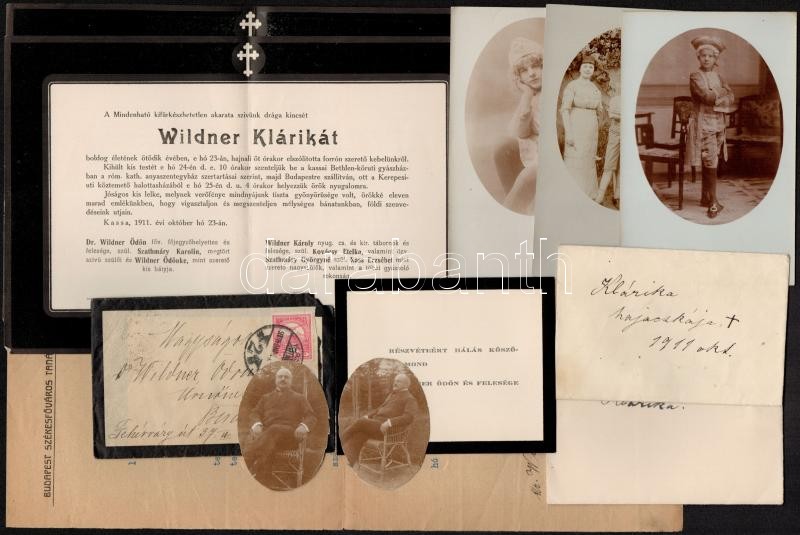 A Mindenható kifürkészhetetlen akarata szivünk drága kincsét
Wildner Klárikát
boldog életének ötödik évében, e hó 23-án, hajnali öt órakor elszólította forrón szerető kebelünkről.
Kihült kis testét e hó 24-én d. e. 10 órakor szenteljük be a kassai Bethlen-köruti gyászház-
ban a róm. kath. anyaszentegyház szertartásai szerint, majd Budapestre szállítván, ott a Kerepesi-
uti köztemető halottasházából e hó 25-én d. u. 4 órakor helyezzük örök nyugalomra.
Jóságos kis lelke, melynek verőfénye mindnyájunk tiszta gyönyörüsége volt, örökké eleven
marad emlékünkben, hogy vigasztaljon és megszenteljen mélységes bánatunkban, földi szenve-
déseink utjain.
Kassa, 1911. évi október hó 23-án.
Dr. Wildner Ödön főv. főjegyzőhelyettes és
felesége, szül. Szathmáry Karolin, megtört
szivü szülői és Wildner Ödönke, mint szerető
kis bátyja.
Wildner Károly nyug. cs. és kir. tábornok és
felesége, szül. Etelka, valamint özv.
Szathmáry Györgyné szül. Erzsébet mint
szerető nagyszülők, valamint a többi gyászoló
rokonság.
darabanth
BUDAPEST SZÉKESFŐVÁROS
Nagyságos
Dr Wildner Ödön
Fehérvári út 37
RÉSZVÉTEÉRT HÁLÁS KÖSZÖ-
MOND
ER ÖDÖN ÉS FELESÉGE
Klárika
hajacskája †
1911 okt.
Klárika.